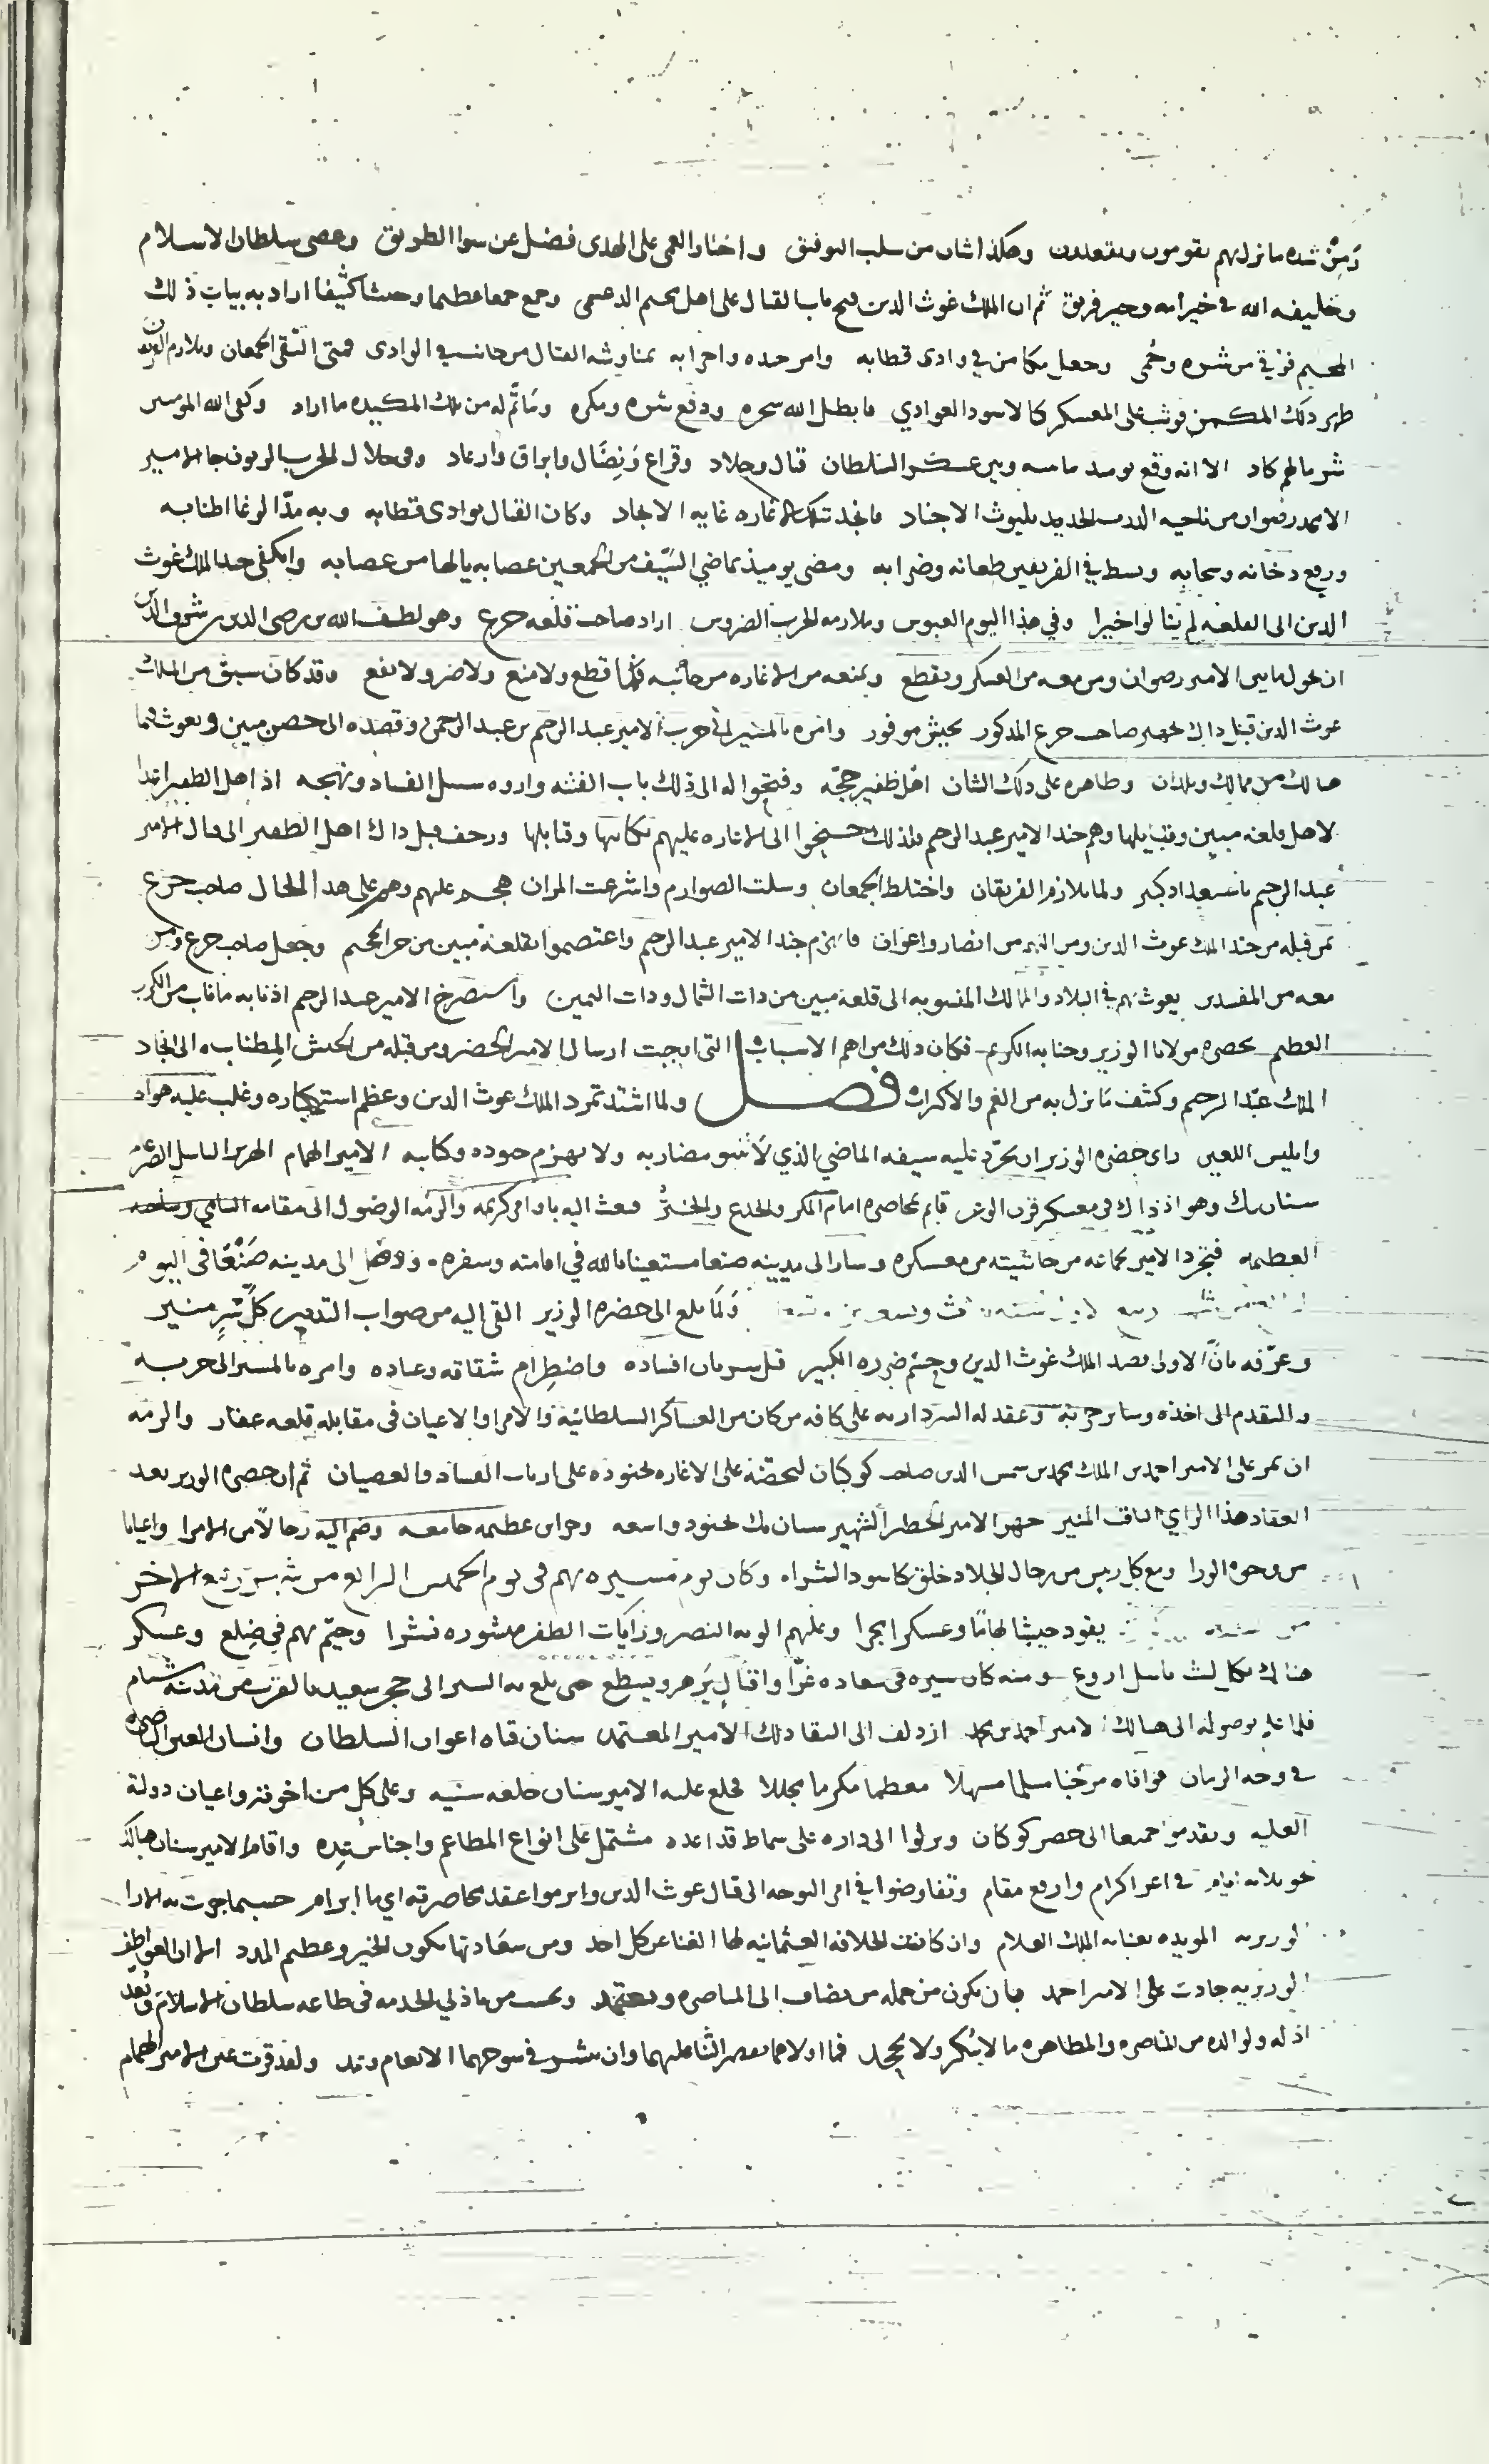 وَمِنْ شده ما نزل بهم يقومون ويقعدون وهكذا شان من سلب التوفيق واختار العمى على الهدى فضل عن سوا الطريق وعصى سلطان الاسلام
وخليفه الله في خير امه وخير فريق ثم ان الملك غوث الدين فتح بابا لقتال على اهل مخيم الدعمى وجمع جمعا عظيما وجيشا كثيفا اراد به بيات ذلك
المخيم فزيق من شره وحُمى وجعل مكامن في وادى قطابه وامر جنده واحزابه بمناوشه القتال من جانب في الوادى فمتى التقى الجمعان وتلازم
ظهر ذلك المكمن فوثب على المعسكر كالاسود العوادي فابطل الله سحره ودفع شره ومكره وما تم له من تلك المكيده ما اراد وكفى الله المومنين
شر ما لهم كاد الا انه وقع يوميد ما بينه وبين عسكر السلطان قتال وجلاد وقراع ونضال وابراق وارعاد وفى خلال الحرب الزبون جا الامير
الامجد رضوان من ناحيه الدرب الحديد بليوث الاجناد فانجد تلك الاغاره غايه الانجاد وكان القتال بوادى قطابه وبه مدّ الوغا اطنابه
ورفع دخانه وسحابه وبسط في الفريقين طعانه وضرابه ومضى يوميذ بماضي السيف من الجمعين عصابه يالها من عصابه وانكفى جند الملك غوث
الدين الى القلعه لم ينالوا خيرا وفي هذا اليوم العبوس وملازمه الحرب الضروس اراد صاحب قلعه حرع وهو لطف الله بن رضى الدين بن شرف الدين
ان يحول ما بين الامير رضوان ومن معه من العسكر ويقطع ويمنعه من الاغاره من جانبه فما قطع ولا منع ولا ضر ولا نفع وقد كان سبق من الملك
غوث الدين قبل ذاك تجهيز صاحب حرع المذكور بجيش موفور وامره بالمسير الى حرب الامير عبد الرحيم بن عبد الرحمن وقصده الى حصن مبين وبعوث فيما
هنالك من ممالك وبلدان وظاهره على ذلك الشان اهل ظفير حجّه وفتحوا له الى ذلك باب الفتنه واروه سبيل الفساد ونهجه اذ اهل الظفير اعدا
لاهل قلعه مبين وقبايلها وهم جند الامير عبد الرحيم ولذلك جنحوا الى الاغاره عليهم بكتايبها وقنابلها وزحف قبل ذاك اهل الظفير الى قتال الامير
عبد الرحيم باستعداد كبير ولما تلازم الفريقان واختلط الجمعان وسلت الصوارم واشرعت المران هجم عليهم وهم على هذا الحال صاحب حرع
بمن قبله من جند الملك غوث الدين ومن اليه من انصار واعوان فانهزم جند الامير عبد الرحيم واعتصموا بقلعة مبين من حر الجحيم وجعل صاحب حرع ومن
معه من المفسدين يعوث بهم في البلاد والممالك المنسوبه الى قلعة مبين من ذات الشمال وذات اليمين واستصرخ الامير عبد الرحيم اذ نابه ما ناب من الكرب
العظيم بحضره مولانا الوزير وجنابه الكريم فكان ذلك من اهم الاسباب التى اوجبت ارسال الامير الخضر ومن قبله من الجيش المطنابه الى انجاد
الملك عبد الرحيم وكشف ما نزل به من الغم والاكراث فصل ولما اشتد تمرد الملك غوث الدين وعظم استكباره وغلب عليه هواه
وابليس اللعين راى حضره الوزير ان يجرّد عليه سيفه الماضي الذي لا تنبو مضاربه ولا يهزم جنوده وكتايبه الامير الهمام الهزبر الباسل الضرغام
سنان بك وهو اذ ذاك في معسكر قرن الوعر قايم بمحاصره امام المكر والخدع والختر فبعث اليه باوامر كريمه والزمه الوصول الى مقامه السامي وساحته
العظيمه فتجرد الامير بجماعه من حاشيته من معسكره وسار الى مدينه صنعا مستعينا بالله في اقامته وسفره ووصل الى مدينه صَنْعا فى اليوم
ربيع ولمّا بلغ الى حضره الوزير القى اليه من صواب التدبير كل شي منير
وعرّفه بان الاولى قصد الملك غوث الدين وحسم ضرره الكبير قبل سريان افساده واضطرام شقاقه وعناده وامره بالمسير الى حربه
والتقدم الى اخذه وساير حزبه وعقد له السردارىه على كافه من كان من العساكر السلطانيه والامرا والاعيان فى مقابله قلعه عفار والزمه
ان يمر على الامير احمد بن الملك محمد بن شمس الدين صاحب كوكبان ليحضّه على الاغاره بجنوده على ارباب الفساد والعصيان ثم ان حضره الوزير بعد
انعقاد هذا الراي الثاقب المنير جهز الامير الخطير الشهير سنان بك بجنود واسعه وخزاين عظيمه جامعه وضم اليه رجالا من الامرا واعيانا
من وجوه الورا ومع كل رييس من رجال الجلاد خلق كاسود الشراه وكان يوم مسيره بهم فى يوم الخميس الرابع من شهر ربيع الاخر
من سنه يقود جيشا لهاما وعسكرا مجرا وعليهم الويه النصر ورايات الظفر منشوره نشرا وخيّم بهم في ضِلع وعسكر
هنالك بكل ليث باسل اروع ومنه كان سيره فى سعاده غرّا واقبال يزهر ويسطع حتى بلغ به السير الى حجر سعيد بالقرب من مدينة شبام
فلما علم بوصوله الى هنالك الامير احمد بن محمد ازدلف الى التقا ذلك الامير المعتمد سنان قناه اعوان السلطان وانسان العين الباصره
في وجه الزمان فوافاه مرحّبا مسلما مسهلا معظما مكرما مبجلا فخلع عليه الامير سنان خلعه سنيه وعلى كل من اخوته واعيان دولته
العليه وتقدموا جميعا الى حصن كوكبان ونزلوا الى داره على سماط قد اعده مشتمل على انواع المطاعم واجناس عِده واقام الامير سنان هنالك
نحو ثلاثه ايام في اعز اكرام وارفع مقام وتفاوضوا في امر التوجه الى قتال غوث الدين وابرموا عقد محاصرته اي ما ابرام حسبما جرت به الارا
الوزيريه المويده بعنايه الملك العلام وان كانت الخلافه العثمانيه لها الغنا عن كل احد ومن سعادتها يكون الخير وعظيم المدد الا ان العواطف
الوزيريه جادت على الامير احمد بان يكون من جمله من يضاف الى المناصره ويعتمد ويحسب من باذلي الخدمه فى طاعه سلطان الاسلام ويُعد
اذ له ولوالده من المناصره والمظاهره ما لا يُنكر ولا يجحد فما اولاهما بنصر الثنا عليهما وان ينشر في سوحهما الانعام ويمد ولقد قرت عين الامير الهمام